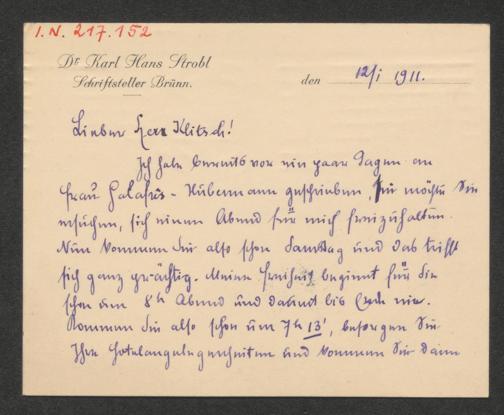 I. N. 217.152
Dr Karl Hans Strobl
Schriftsteller Brünn.
den 12/I 1911.
Lieber Herr Klitsch!
Ich habe bereits vor ein paar Tagen an
Frau Galafrés-Hubermann geschrieben, sie möchte Sie
ersuchen, sich einen Abend für mich freizuhalten.
Nun kommen Sie also schon Samstag und das trifft
sich ganz prächtig. Meine Freiheit beginnt für Sie
schon um 8h Abend und dauert bis Ende nie.
Kommen Sie also schon um 7h 13', besorgen Sie
Ihre Hotelangelegenheiten und kommen Sie dann